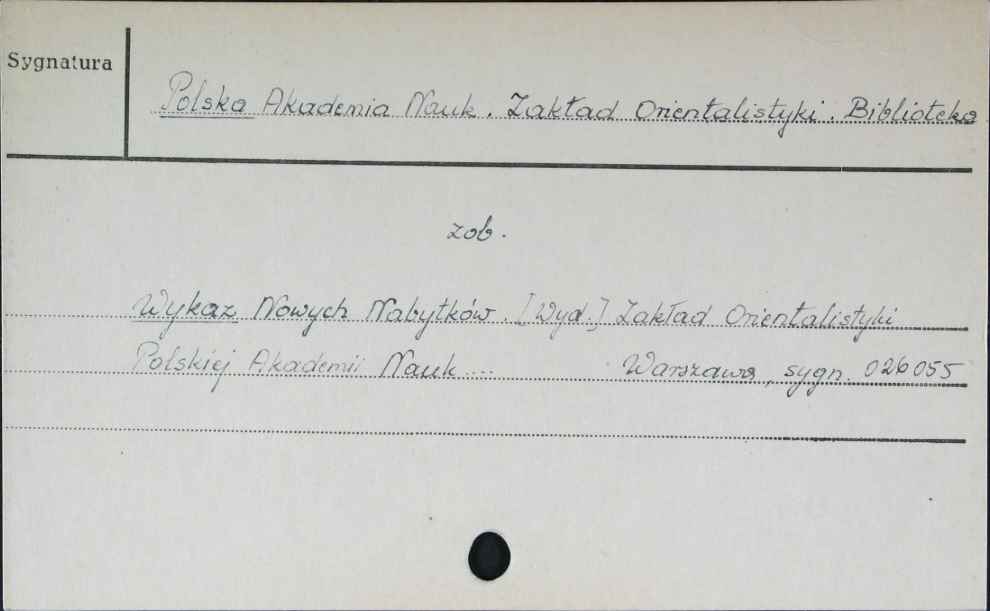 Sygnatura
Polska Akademia Nauk. Zakład Orientalistyki. Biblioteka
zob.
Wykaz Nowych Nabytków. [Wyd.] Zakład Orientalistyki
Polskiej Akademii Nauk... Warszawa, sygn. 026055